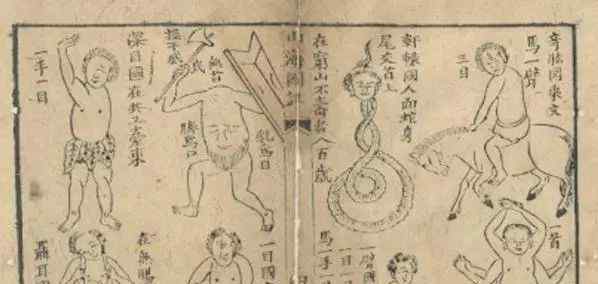 奇肱國乘文
馬一臂
三目
軒轅國人面蛇身
尾交首上
在窮山不壽者八百歲
山海圖
無首
乳為目
臍為口
深目國在共工臺東
一手一目
一首
一臂國
一目一
馬一手
一目國
在無腸
聶耳國